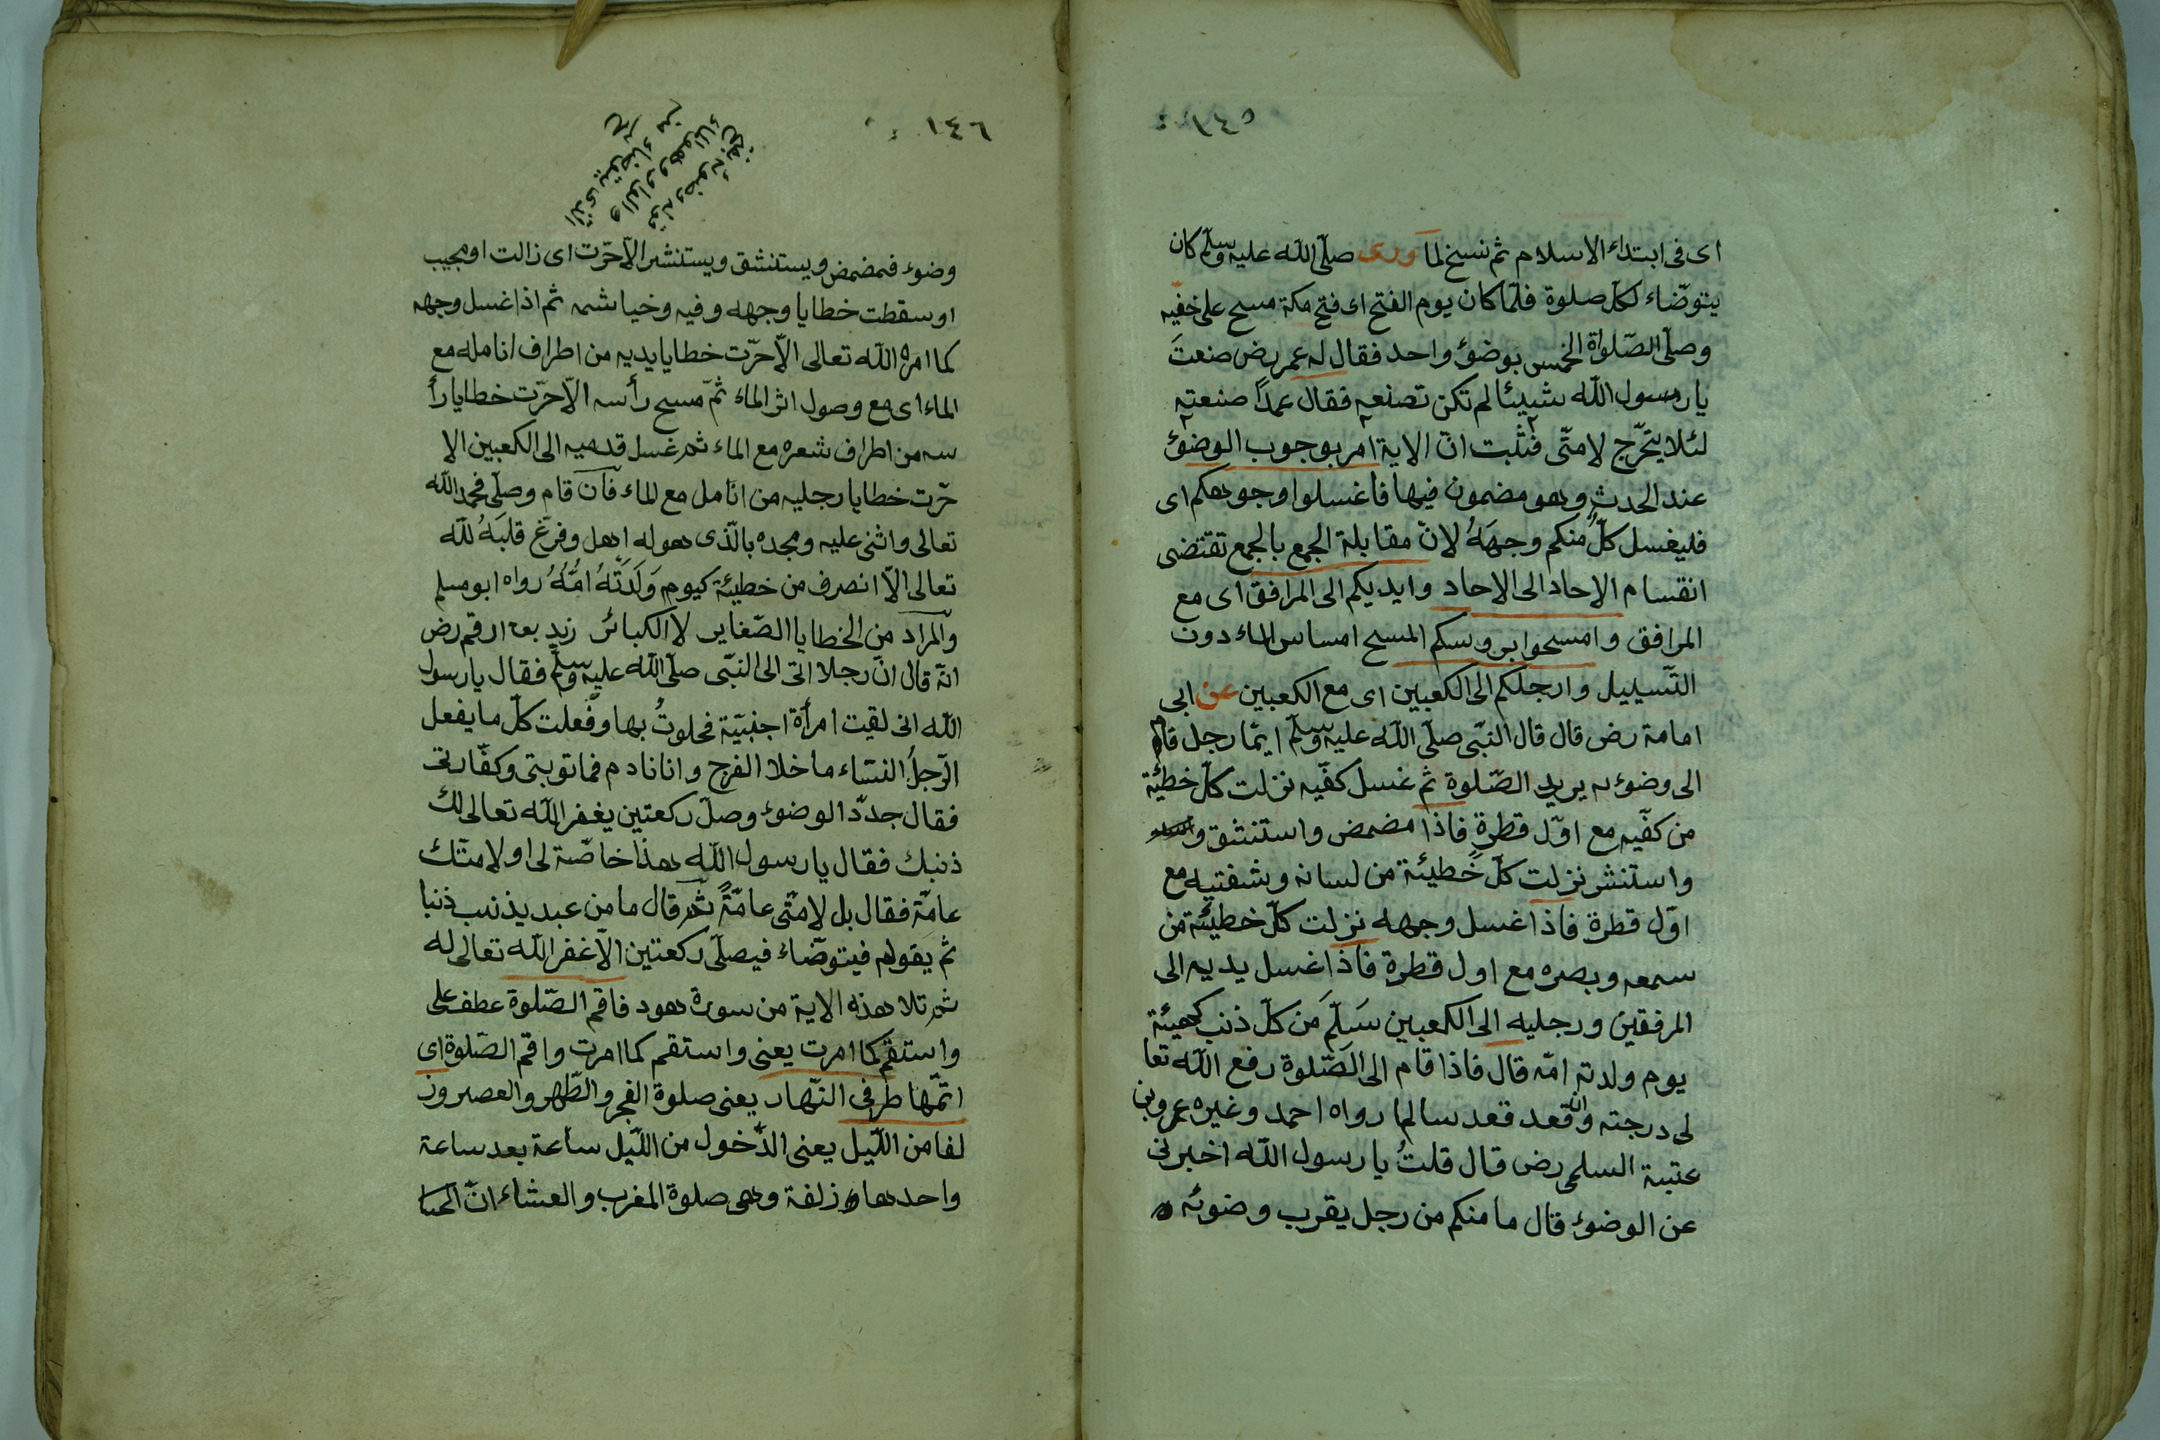 اى فى ابتداء الاسلام ثم نسخ لما ورى صلّى الله عليه وسلّم كان
يتوضّاء لكلّ صلوة فلمّا كان يوم الفتح اى فتح مكة مسح على خفّيه
وصلّى الصّلواة الخمس بوضوء واحد فقال له عمر رض صنعتَ
يا رسول الله شيئا لم تكن تصنعه فقال عمداً صنعته
لئلا يتحّرج لامتّى فثبت انّ الاية امر بوجوب الوضوء
عند الحدث وهو مضمون فيها فاغسلوا وجوهكم اى
فليغسل كلٌّ منكم وجهَهُ لانّ مقابلة الجمع بالجمع تقتضى
انقسام الاحاد الى الاحاد وايديكم الى المرافق اى مع
المرافق وامسحوا بروسكم المسح امساس الماء دون
التّسييل وارجلكم الى الكعبين اى مع الكعبين عن ابى
امامة رض قال قال النبّى صلّى الله عليه وسلّم ايّما رجل قام
الى وضوءه يريد الصّلوة ثم غسل كفّيه نزلت كلّ خطيئة
من كفّيه مع اوّل قطرة فاذا مضمض واستنشق
واستنشر نزلت كلّ خطيئة من لسانه وشفتيه مع
اوّل قطرة فاذا غسل وجهه نزلت كلّ خطيئة من
سمعه وبصره مع اول قطرة فاذا غسل يديه الى
المرفقين ورجليه الى الكعبين سَلّمَ من كلّ ذنب كهيئة
يوم ولدته امّه قال فاذا قام الى الصّلوة رفع الله تعا
لى درجته وان قعد قعد سالما رواه احمد وغيره عمرو بن
عتبة السلمى رض قال قلتُ يا رسول الله اخبرنى
عن الوضوء قال ما منكم من رجل يقرب وضوئه
١٤٦
قوله وضوئه بفتح
والواو وهو الماء
الذى يتوضاء من
وضوء فمضمض ويستنشق ويستنشر الاّ حرّت اى زالت او بجيب
او سقطت خطايا وجهه وفيه وخياشمه ثم اذا غسل وجهه
كما امره الله تعالى الاّ حرّت خطايا يديه من اطراف انامله مع
الماء اى مع وصول اثر الماء ثمّ مسح رأسه الاّ حرّت خطايا رأ
سه من اطراف شعره مع الماء ثم غسل قدميه الى الكعبين الا
حرّت خطايا رجليه من انامل مع الماء فان قام وصلّى فحمد الله
تعالى واثنى عليه ومجده بالّذى هو له اهل وفرّغ قلبَهُ لله
تعالى الاّ انصرف من خطيئة كيوم وَلَدَتْهُ امُّهُ رواه ابو مسلم
والمراد من الخطايا الصّغاير لا الكبائر زيد بن ارقم رض
انّه قال انّ رجلا اتى الى النبّى صلّى الله عليه وسلّم فقال يا رسول
الله انى لقيت امرأة اجنبيّة فخلوتُ بها وفعلت كلّ ما يفعل
الرّجلُ النسّاء ما خلا الفرج وانا نادم فما توبتى وكفّارتى
فقال جددّ الوضوء وصلّ ركعتين يغفر الله تعالى لك
ذنبك فقال يا رسول الله هذا خاصّة لى او لامتّك
عامّة فقال بل لامتّى عامّةً ثم قال ما من عبد يذنب ذنبا
ثم يقوم فيتوضّاء فيصلّى ركعتين الاّ غفر الله تعالى له
ثم تلا هذه الاية من سورة هود فاقم الصّلوة عطف على
واستقم كما امرت يعنى واستقم كما امرت واقم الصّلوة اى
اتمّها طرفى النّهار يعنى صلوة الفجر والظّهر والعصر وز
لفا من اللّيل يعنى الدّخول من اللّيل ساعة بعد ساعة
واحدها زلفة وهى صلوة المغرب والعشاء انّ الحسنا